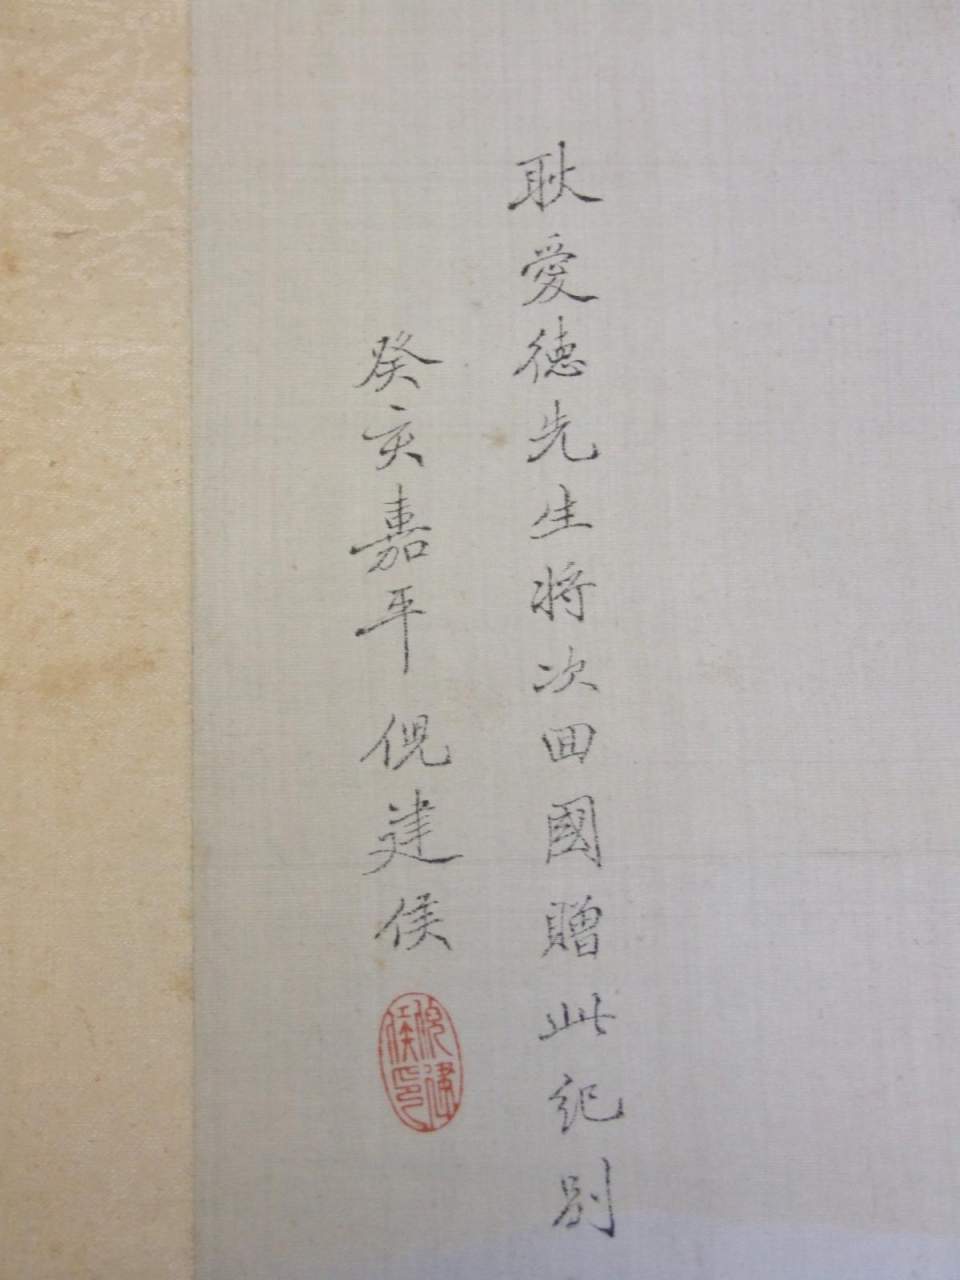 耿愛德先生將次回國贈此紀別
癸亥嘉平倪建侯
倪建侯印